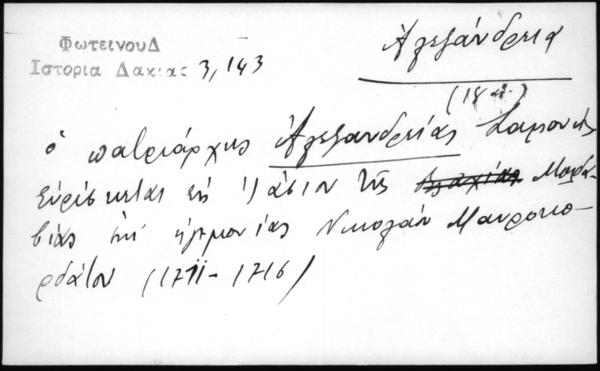 ΦωτεινουΔ
Ιστορια Δακιας 3,143
Ἀλεξάνδρεια
(18
ὁ πατριάρχης Ἀλεξανδρείας Σαμουήλ
εὑρίσκεται εἰς Ἰάσιον τῆς Μολδα-
βίας ἐπὶ ἡγεμονίας Νικολάου Μαυροκο-
ρδάτου (1711-1716)